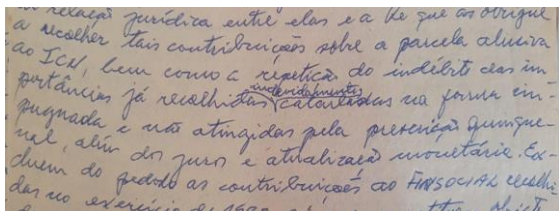 relação jurídica entre elas e a Ré que as obrigue
a recolher tais contribuições sobre a parcela alusiva
ao ICM, bem como a repetição do indébito das im
indevidamente
portâncias já recolhidas calculadas na forma im-
pugnada e não atingidas pela prescrição quinque-
nal, além dos juros e atualização monetária. Ex-
cluem do pedido as contribuições ao FINSOCIAL recolhi
das no exercício de